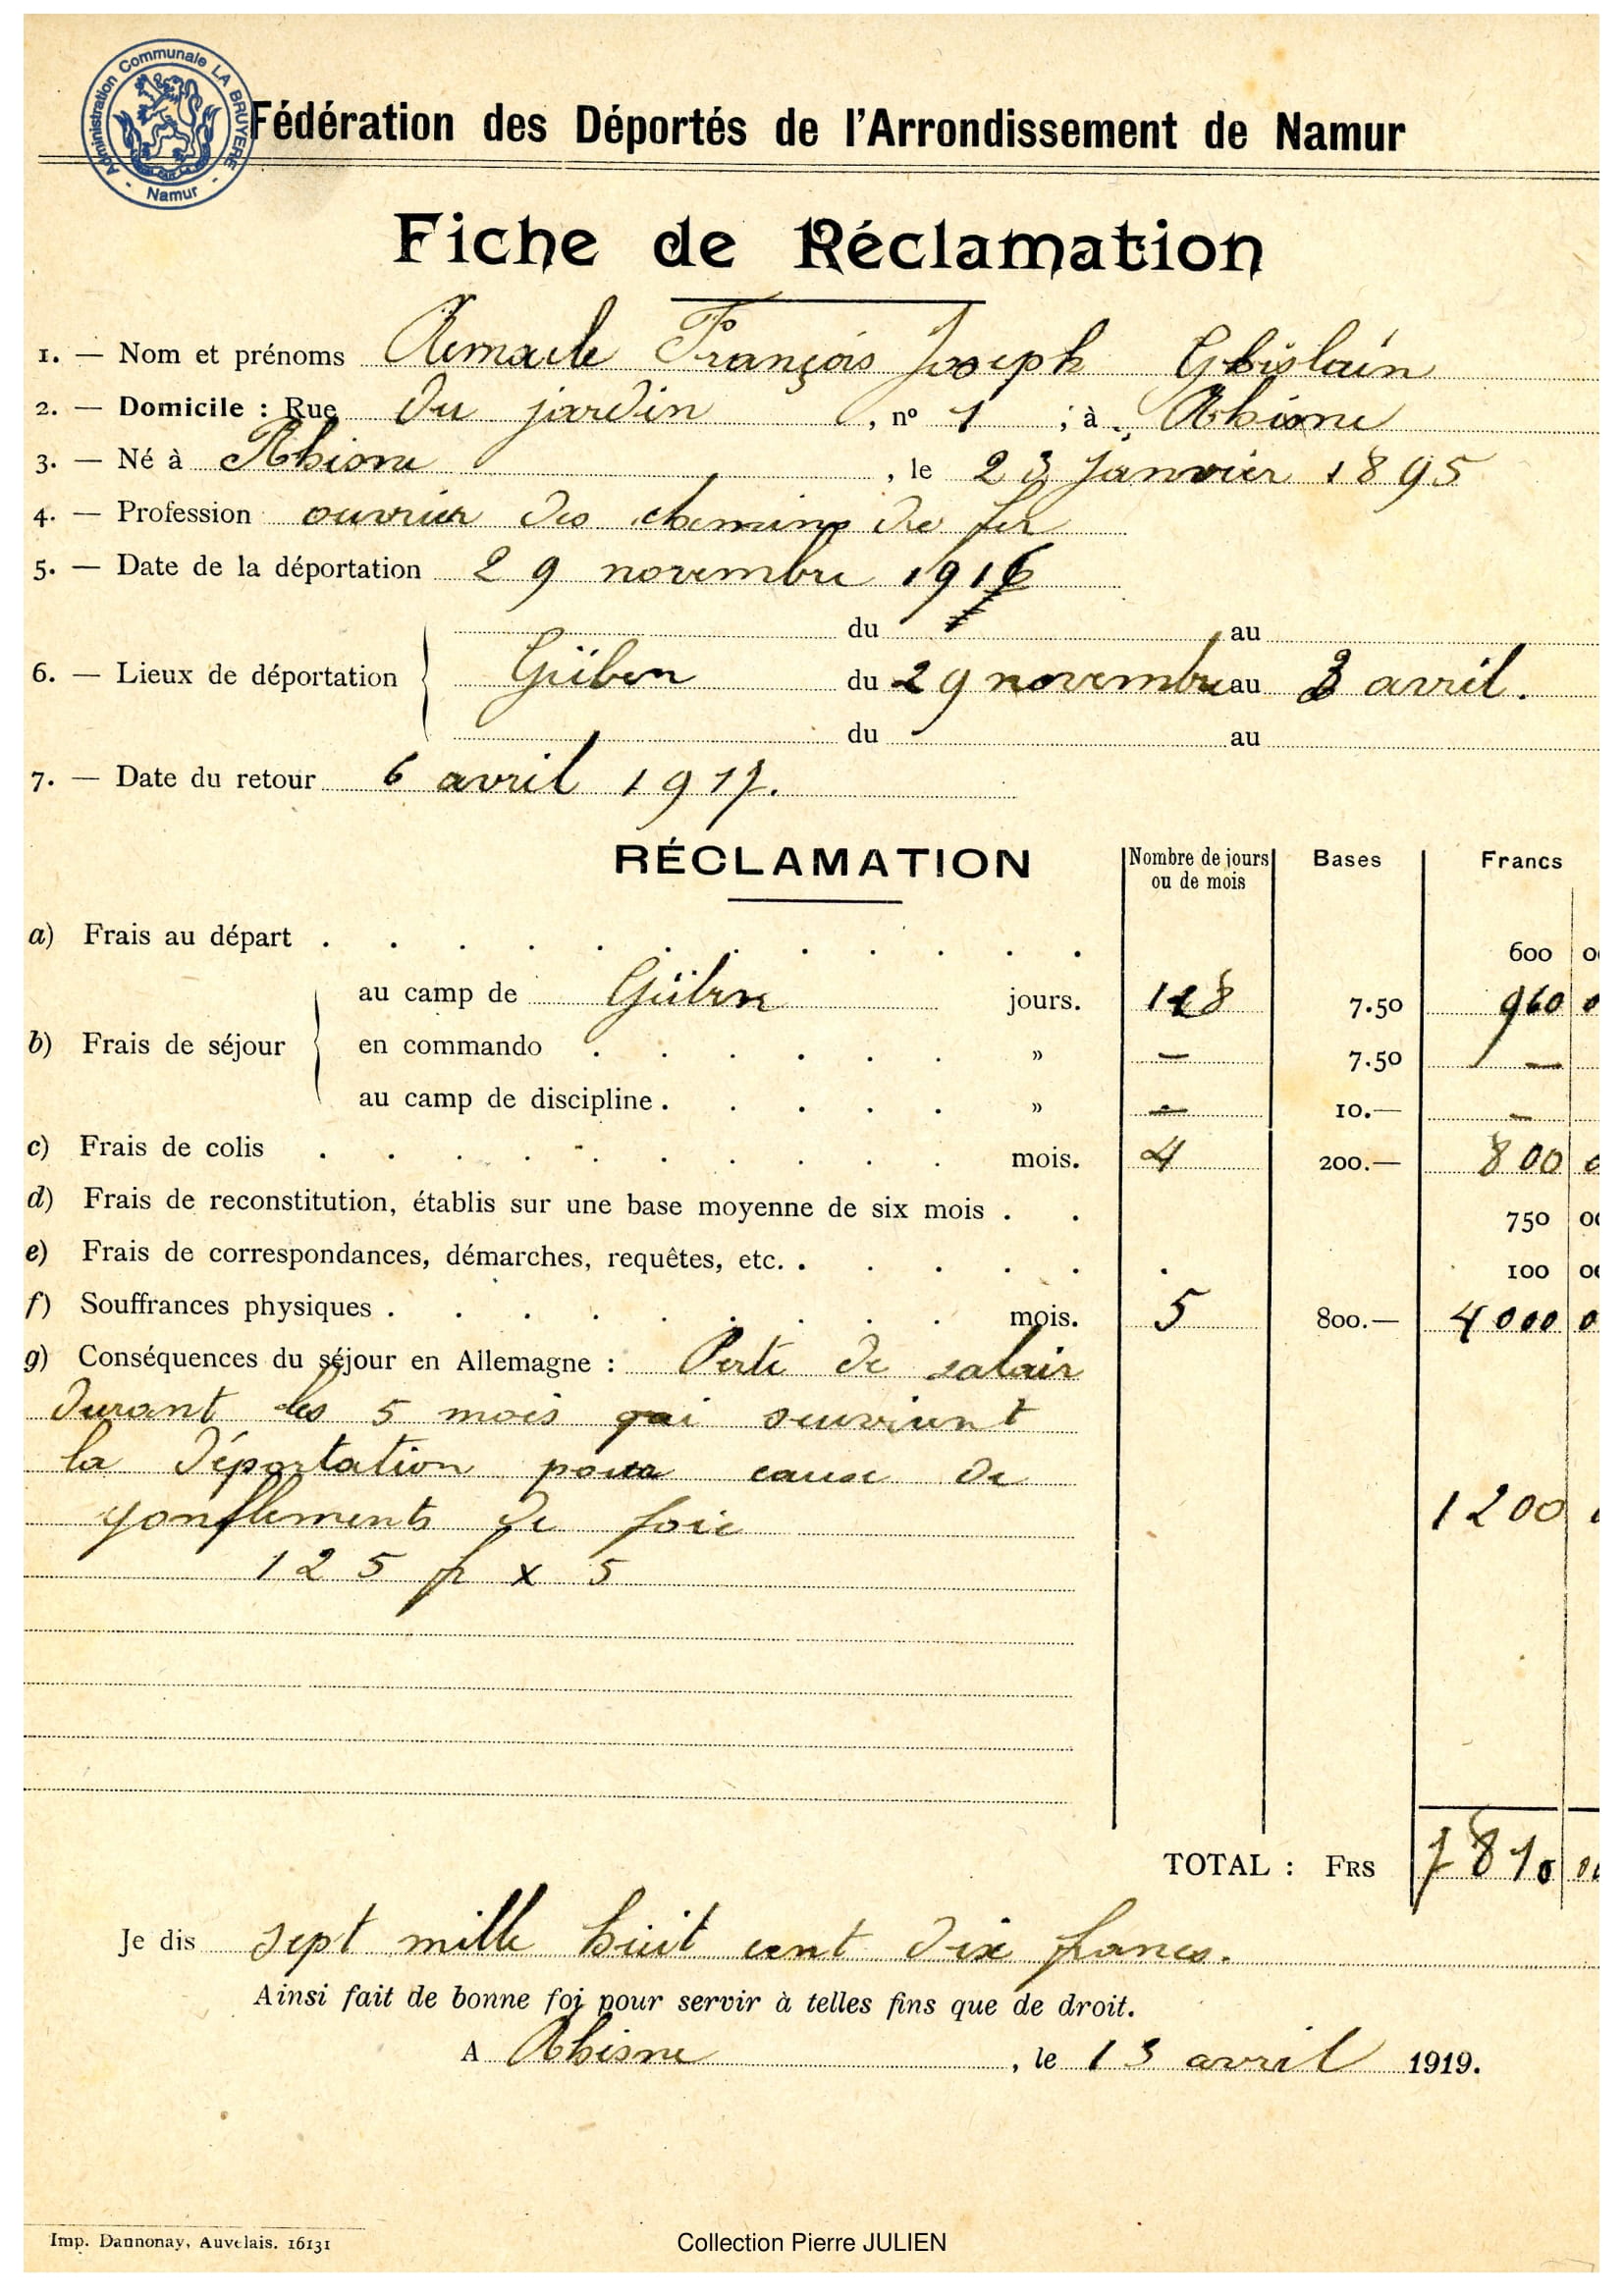 Administration Communale LA BRUYERE - Namur -
Fédération des Déportés de l'Arrondissement de Namur
Fiche de Réclamation
1. — Nom et prénoms Remacle François Joseph Ghislain
2. — Domicile : Rue du jardin , nº 1 ; à Rhisne
3. — Né à Rhisne , le 23 Janvier 1895
4. — Profession ouvrier des chemins de fer
5. — Date de la déportation 29 novembre 1916
du au
6. — Lieux de déportation Güben du 29 novembre au 3 avril.
du au
7. — Date du retour 6 avril 1917.
RÉCLAMATION Nombre de jours ou de mois Bases Francs
a) Frais au départ . . . . . . . . . . . . 600
au camp de Güben jours. 128 7.50 960
b) Frais de séjour en commando . . . . . . » — 7.50 —
au camp de discipline . . . . . » — 10.— —
c) Frais de colis . . . . . . . . . . mois. 4 200.— 800
d) Frais de reconstitution, établis sur une base moyenne de six mois . . 750
e) Frais de correspondances, démarches, requêtes, etc. . . . . . . 100
f) Souffrances physiques . . . . . . . . . mois. 5 800.— 4000
g) Conséquences du séjour en Allemagne : Perte de salair
durant les 5 mois qui suivirent
la déportation pour cause de
gonflements de foie 1200
125 fr x 5
TOTAL : FRS 7810
Je dis sept mille huit cent dix francs.
Ainsi fait de bonne foi pour servir à telles fins que de droit.
A Rhisne , le 13 avril 1919.
Imp. Dannonay, Auvelais. 16131
Collection Pierre JULIEN